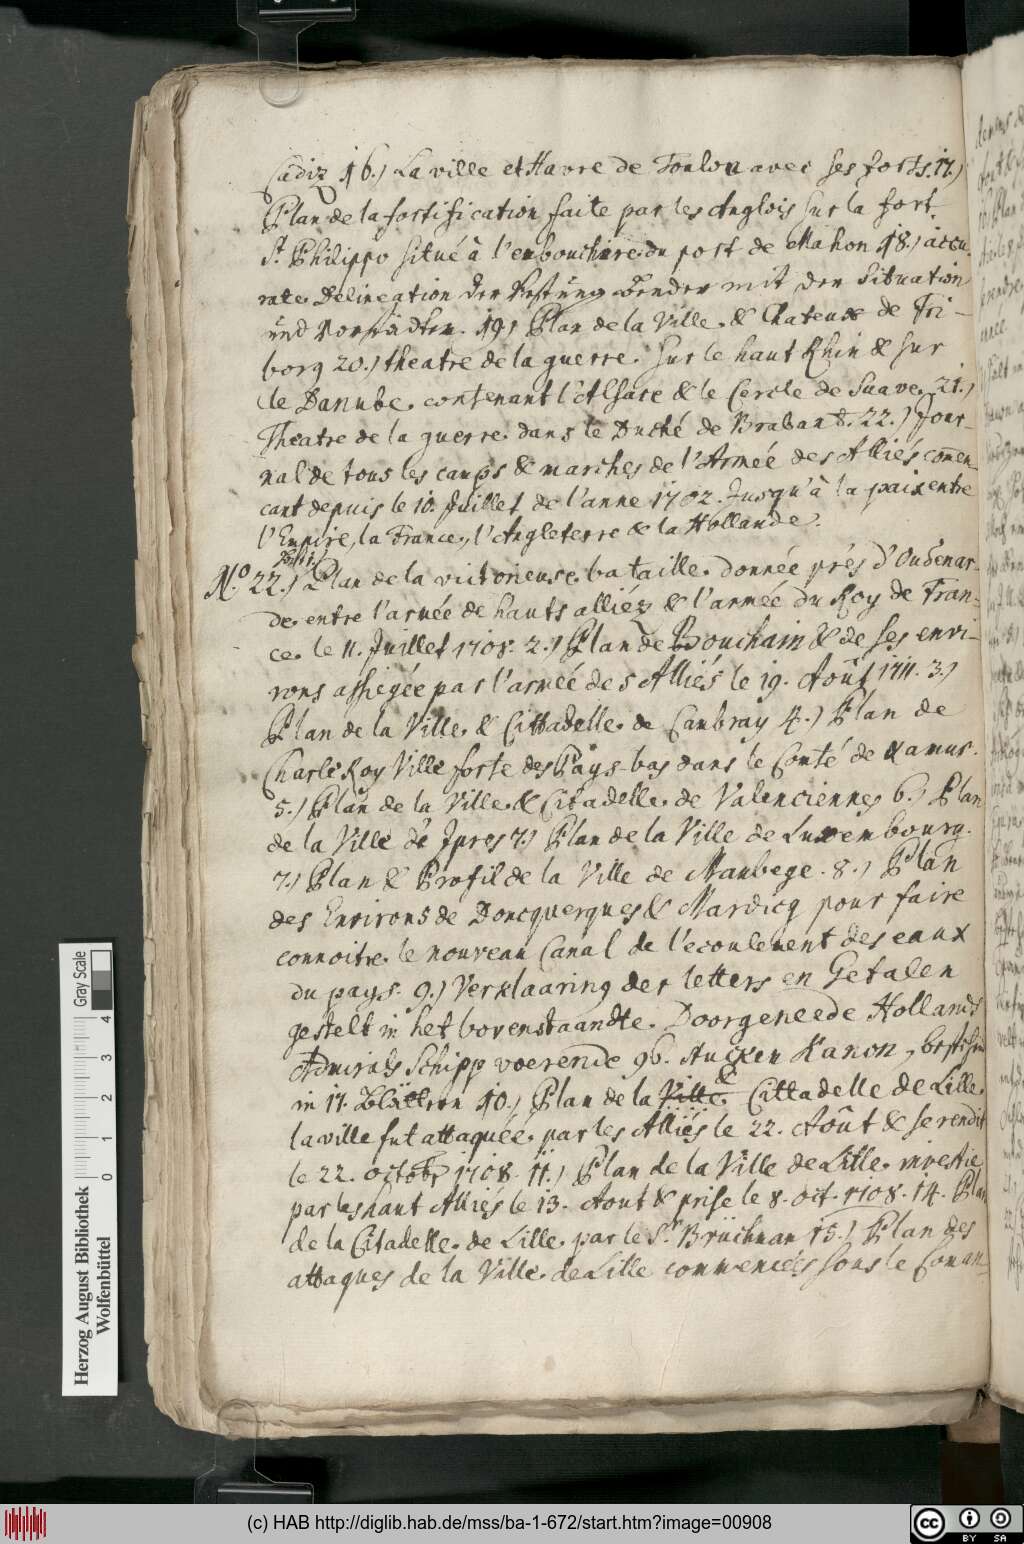 Cadiz 16.) La ville et Havre de Toulon avec ses forts. 17.)
Plan de la fortification faite par les Anglois sur la fort.
St. Philippo situé à l'enbouchure du port de Mahon 18.) accu-
rate Delineation der Vestung Bender mit der Situation
und Vorstädten. 19) Plan de la Ville & Chateux de Fri-
borg 20.) theatre de la guerre sur le haut Rhin & sur
le Danube contenant l'Alsace & le Cercle de Suave 21.)
Theatre de la guerre dans le Duché de Braband. 22.) Jour-
nal de tous les camps & marches de l'Armée des Alliés commen-
cant depuis le 10. Juillet de l'anne 1702. Jusqu'à la paix entre
l'Empire, la France, l'Angleterre & la Hollande.
No. 22.) Plan de la victorieuse bataille donnée prés d'Oudenar-
de entre l'armée de hauts alliéz & l'armée du Roy de Fran-
ce le 11. Juillet 1708. 2.) Plan de Bouchain & de ses envi-
rons assiegée par l'armée des Alliés le 19. Aoûst 1711. 3.)
Plan de la Ville & Cittadelle de Canbray 4.) Plan de
Charle Roy Ville forte des Pays-bas dans le Conté de Namur.
5.) Plan de la Ville & Citadelle de Valenciennes 6.) Plan
de la Ville de Ipres 7.) Plan de la Ville de Luxembourg.
7.) Plan & Profil de la Ville de Maubege. 8.) Plan
des Environs de Doncquerques & Mardicq pour faire
connoitre le nouveau Canal de l'ecoulement des eaux
du pays. 9.) Verklaaring der letters en Getalen
gestelt in het bovenstaandte Doorgeneede Hollands
Admirals Schipp voerende 96. Stucken Kanon, bestehen
in 11. Blättern 10.) Plan de la Ville & Cittadelle de Lille.
la ville fut attaquée par les Alliés le 22. Août & se rendit
le 22. octobr 1708. 11.) Plan de la Ville de Lille investie
par les haut Alliés le 13. Aout & prise le 8. oct. 1708. 14. Plan
de la Citadelle de Lille par le Sr. Brüchman 15.) Plan des
attaques de la Ville de Lille commencées sous le Coman-
Herzog August Bibliothek
Wolfenbüttel
0 1 2 3 4
Gray Scale
(c) HAB http://diglib.hab.de/mss/ba-1-672/start.htm?image=00908
cc BY SA